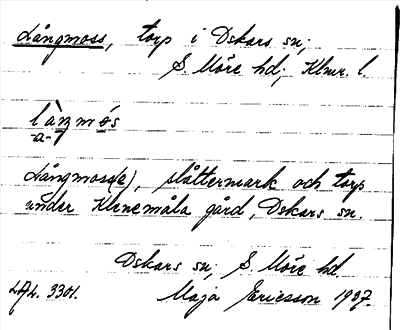 Långmoss, torp i Oskars sn;
S. Möre hd; Klmr. l.
lànmós
-a-
Långmoss(e), slåttermark och torp
under Klinemåla gård, Oskars sn.
Oskars sn, S. Möre hd.
3301. Maja Ericsson 1937.